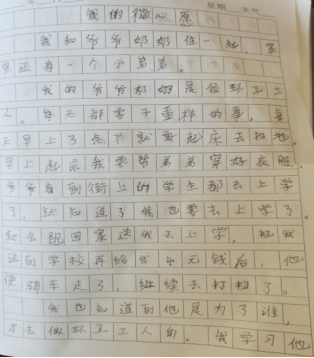 年 月 日 星期 天气
我的微心愿
我和爷爷奶奶住一起，家
里还有一个小弟弟。
我的爷爷奶奶是位环卫工
人。每天都要干重样的事，每
天早上了点书就要起床去扫地。
早上起后我要帮弟弟穿好衣服
爷爷看到街上的学生都去上学
了，就知道了我也要去上学了
就会跑回家送我去上学，把我
送到学校再给我4元钱后，他
便骑车走了，继续去打扫了。
我也知道到他是为了谁，
才去做环卫工人的。我学习他